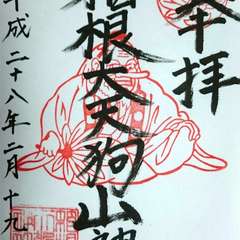 奉拝
箱根大天狗山神
平成二十八年二月十九